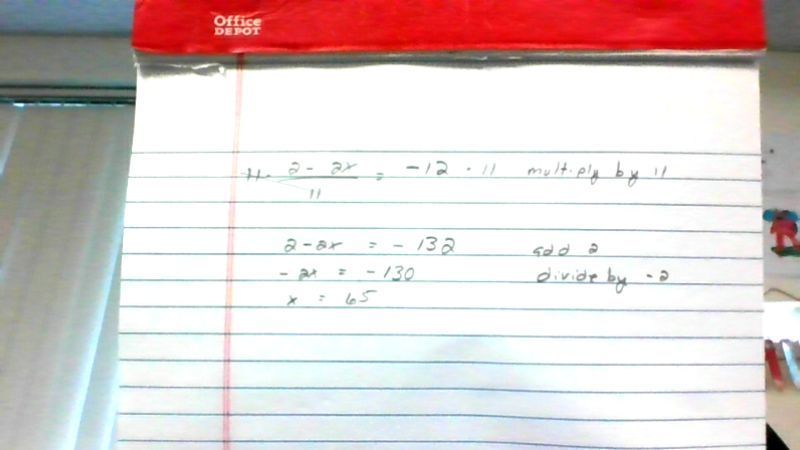 Office
DEPOT
11 · 2 - 2x = -12 · 11 multiply by 11
11
2 - 2x = - 132 add 2
- 2x = - 130 divide by - 2
x = 65